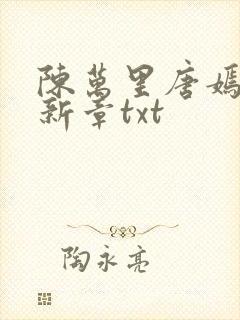 陳萬里唐嫣
新章txt
陶永亮